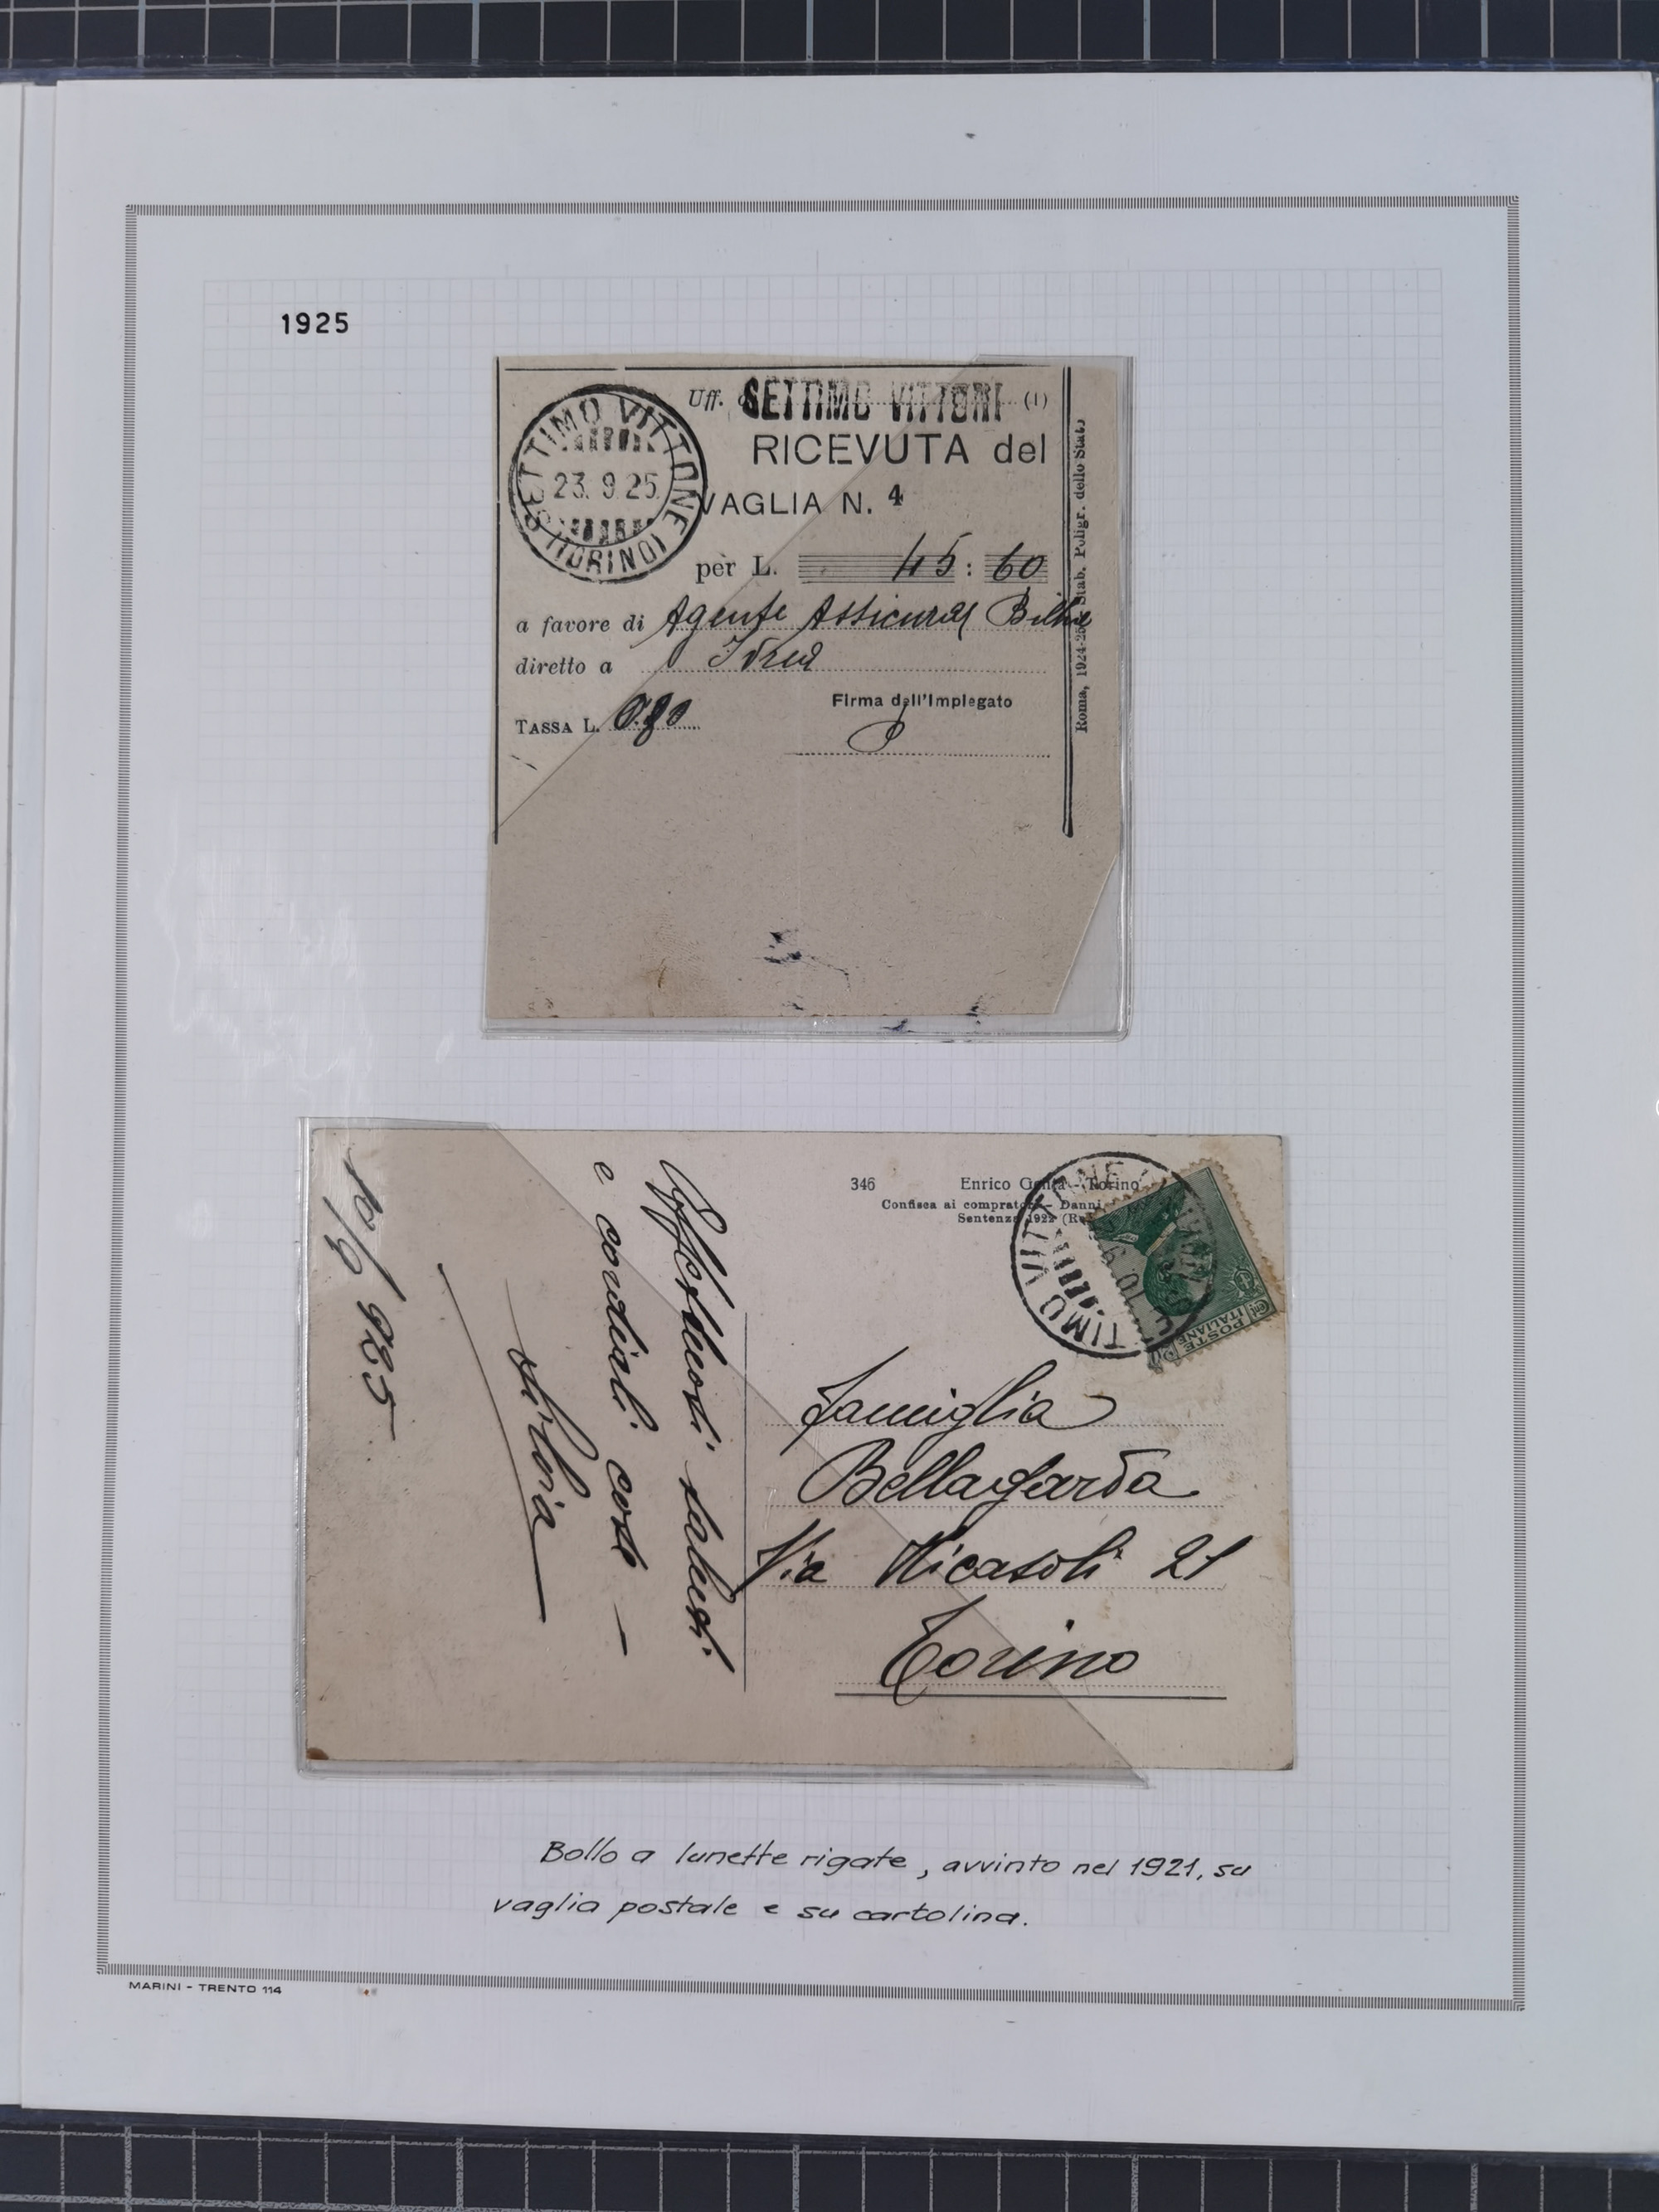 1925
Uff. d SETTIMO VITTONI (1)
SETTIMO VITTONE (TORINO)
23. 9. 25.
RICEVUTA del
VAGLIA N. 4
per L. 45 : 60
a favore di Agente
diretto a
TASSA L. 0.80
Firma dell'Impiegato
Roma, 1924-25 Stab. Poligr. dello Stato
346 Enrico Torino
Confisca ai compratori - Danni
Sentenza 1922
TIMO VITTONE
POSTE ITALIANE
Cent
Affettuosi saluti
e cordiali cose -
Silvia
10/9 925
Famiglia
Bellagarda
Via Ricasoli 21
Torino
Bollo a lunette rigate, avvinto nel 1921, su
vaglia postale e su cartolina.
MARINI - TRENTO 114